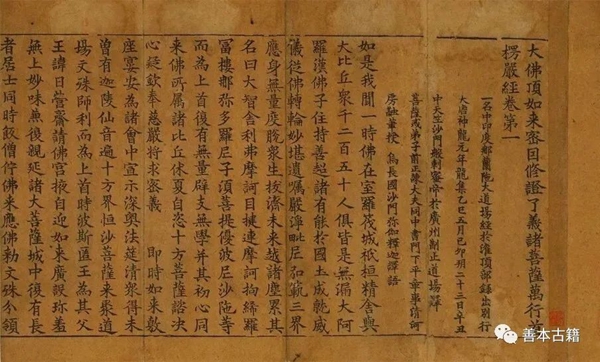 大佛頂如來密因修證了義諸菩薩萬行首
楞嚴經卷第一
一名中印度那蘭陀大道場經於灌頂部錄出別行
大唐神龍元年龍集乙巳五月己卯朔二十三日辛丑
中天竺沙門般剌蜜帝於廣州制止道場譯
菩薩戒弟子前正議大夫同中書門下平章事清河
房融筆授 烏長國沙門彌伽釋迦譯語
如是我聞一時佛在室羅筏城祇桓精舍與
大比丘衆千二百五十人俱皆是無漏大阿
羅漢佛子住持善超諸有能於國土成就威
儀從佛轉輪妙堪遺囑嚴淨毗尼弘範三界
應身無量度脫衆生拔濟未來越諸塵累其
名曰大智舍利弗摩訶目揵連摩訶拘絺羅
富樓那彌多羅尼子須菩提優波尼沙陁等
而為上首復有無量辟支無學并其初心同
來佛所屬諸比丘休夏自恣十方菩薩諮決
心疑欽奉慈嚴將求密義 即時如來敷
座宴安為諸會中宣示深奧法筵清衆得未
曾有迦陵仙音遍十方界恒沙菩薩來聚道
場文殊師利而為上首時波斯匿王為其父
王諱日營齋請佛宮掖自迎如來廣設珍羞
無上妙味兼復親延諸大菩薩城中復有長
者居士同時飯僧佇佛來應佛勑文殊分領
善本古籍